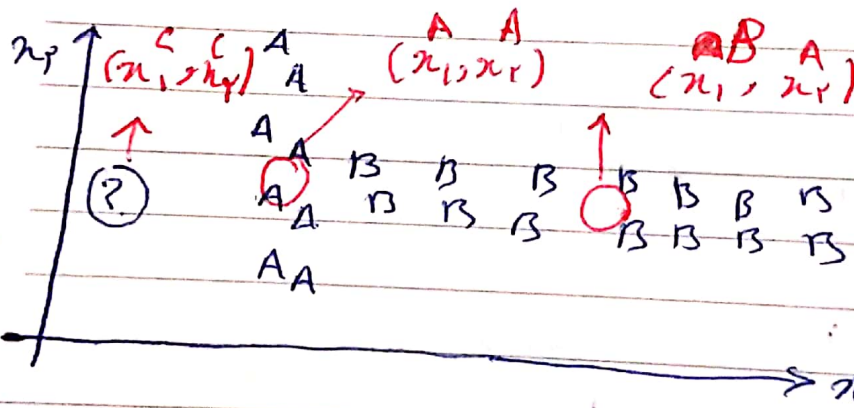 x₂
C C
(x₁, x₂)
A A
(x₁, x₂)
B A
(x₁, x₂)
A
A
A
A B B B B B B B
?
A A B B B B B B B
A A
x